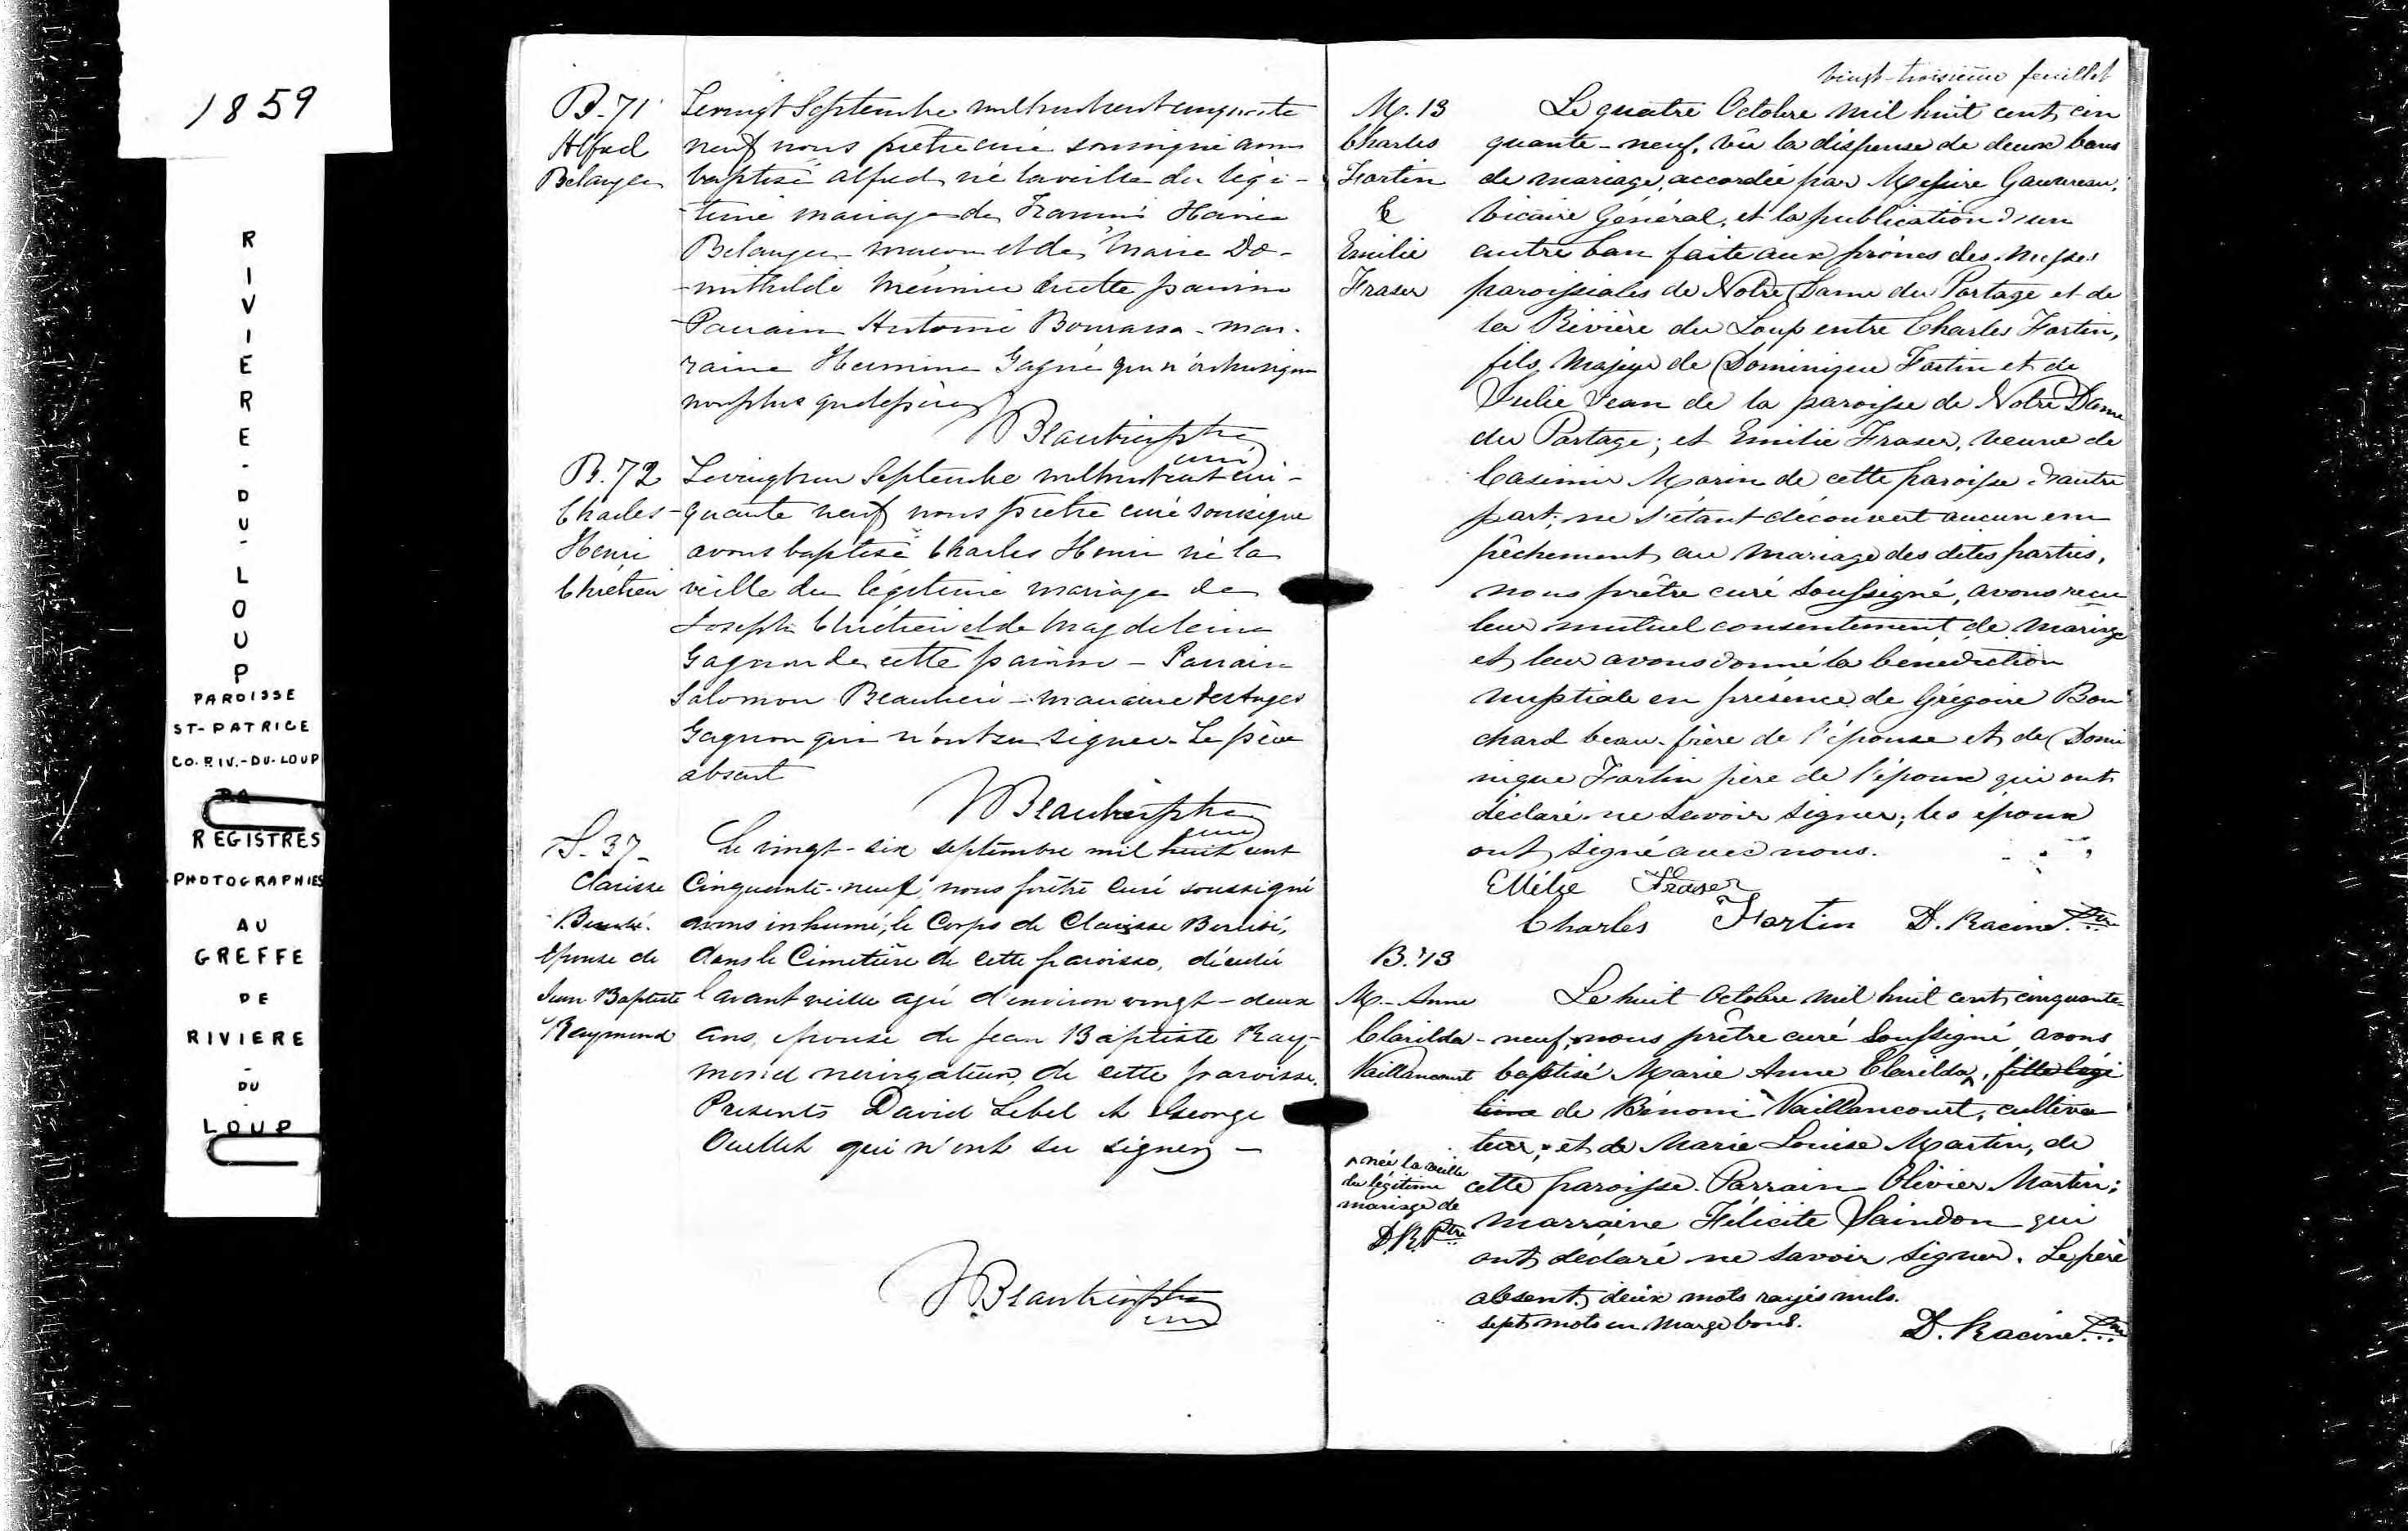 1859
RIVIERE-DU-LOUP
PAROISSE
ST-PATRICE
CO. RIV.-DU-LOUP
REGISTRES
PHOTOGRAPHIES
AU
GREFFE
DE
RIVIERE
-
DU
-
LOUP
B. 71
Alfred
Belanger
Le vingt Septembre mil huit cent cinquante
neuf nous prêtre curé soussigné avons
baptisé Alfred né la veille du légi-
time mariage de
Belanger maçon et de Marie Do-
mithilde Meunier de cette paroisse
Parrain Antoine Bourassa - mar-
raine Hermine Gagné qui n'ont su signer
non plus que le père
ptre
curé
B. 72
Charles
Henri
Chrétien
Le vingt un Septembre mil huit cent cin-
quante neuf nous prêtre curé soussigné
avons baptisé Charles Henri né la
veille du légitime mariage de
Joseph Chrétien et de Magdeleine
Gagnon de cette paroisse - Parrain
Salomon Beaulieu - marraine Desanges
Gagnon qui n'ont su signer. Le père
absent
ptre
curé
S. 37 -
Clarisse
épouse de
Jean Baptiste
Raymond
Le vingt-six septembre mil huit cent
Cinquante-neuf, nous prêtre Curé soussigné
avons inhumé, le Corps de Clarisse
dans le Cimetière de cette paroisse, décédée
l'avant veille agée d'environ vingt-deux
ans, épouse de Jean Baptiste Ray-
mond navigateur, de cette paroisse.
Presents David Lebel et George
Ouellet qui n'ont su signer -
ptre
curé
vingt-troisième feuillet
M. 13
Charles
Fortin
&
Emilie
Fraser
Le quatre Octobre mil huit cent cin
quante-neuf, vû la dispense de deux bans
de mariage, accordée par Messire Gauvreau,
Vicaire Général, et la publication d'un
autre ban faite aux prônes des Messes
paroissiales de Notre Dame du Portage et de
la Rivière du Loup entre Charles Fortin,
fils majeur de Dominique Fortin et de
Julie Jean de la paroisse de Notre Dame
du Portage; et Emilie Fraser, veuve de
Casimir Morin de cette paroisse d'autre
part; ne s'étant découvert aucun em
pêchement au mariage des dites parties,
nous prêtre curé soussigné, avons reçu
leur mutuel consentement de mariage
et leur avons donné la benediction
nuptiale en présence de Grégoire Bou
chard beau-frère de l'épouse et de Domi
nique Fortin père de l'époux qui ont
déclaré ne savoir signer; les époux
ont signé avec nous.
Fraser
Charles Fortin D. Racine Ptre
B. 73
M. Anne
Clarilda
Vaillancourt
Le huit Octobre mil huit cent cinquante-
neuf, nous prêtre curé soussigné avons
baptisé Marie Anne Clarilda^, fille légi
time de Bénoni Vaillancourt, cultiva
teur; et de Marie Louise Martin, de
cette paroisse. Parrain Olivier Martin;
marraine Félicité Saindon qui
ont declaré ne savoir signer. Le père
absent. deux mots rayés nuls.
sept mots en marge bons. D. Racine Ptre
^ née la veille
du légitime
mariage de
D.R. Ptre